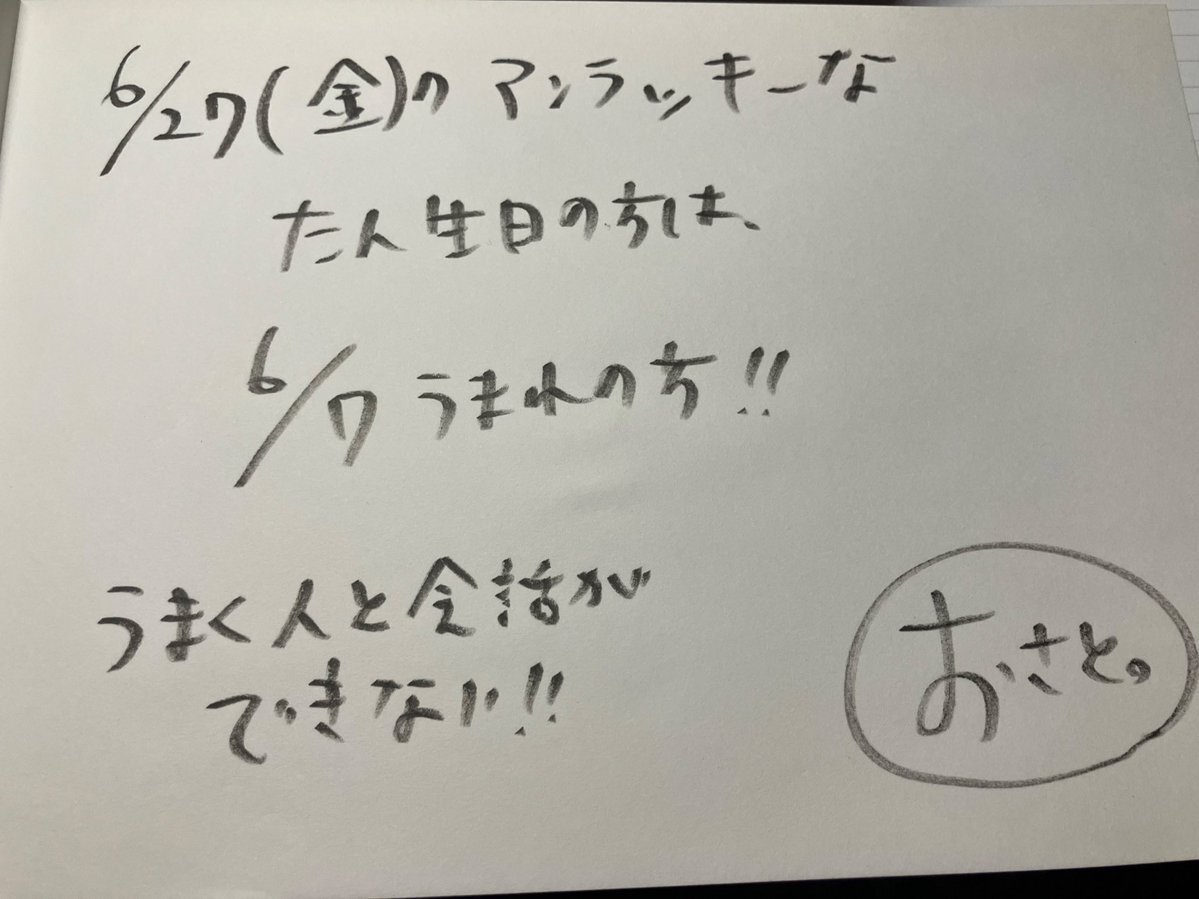 6/27(金)のアンラッキーな
たん生日の方は、
6/7うまれの方!!
うまく人と会話が
できない!!
おさと。